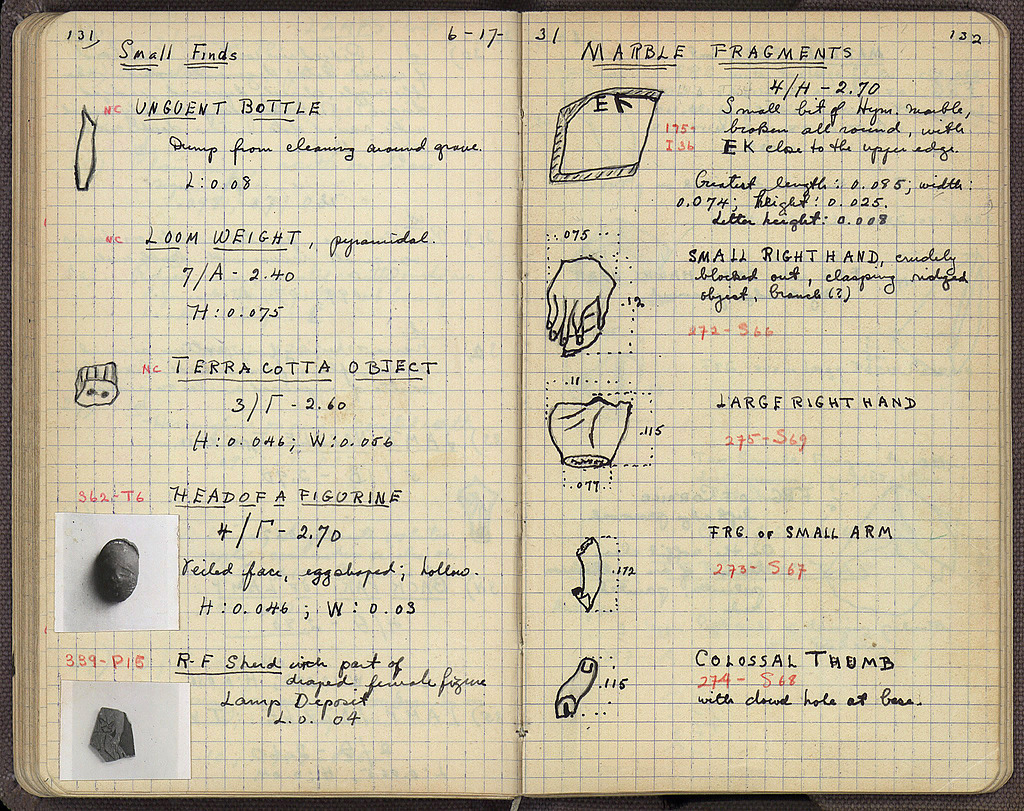 131
6-17-31
Small Finds
NC UNGUENT BOTTLE
Dump from cleaning around grave.
L: 0.08
NC LOOM WEIGHT, pyramidal.
7/A - 2.40
H: 0.075
NC TERRA COTTA OBJECT
3/Γ - 2.60
H: 0.046; W: 0.056
362-T6 HEAD OF A FIGURINE
4/Γ - 2.70
Veiled face, eggshaped; hollow.
H: 0.046; W: 0.03
339-P15 R-F Sherd with part of
draped female figure
Lamp Deposit
L. 0.04
132
MARBLE FRAGMENTS
4/H - 2.70
EK
Small bit of Hym. marble,
175-
broken all round, with
I 36
EK close to the upper edge.
Greatest length: 0.085; width:
0.074; height: 0.025.
Letter height: 0.008
.075
.12
SMALL RIGHT HAND, crudely
blocked out, clasping ridged
object, branch (?)
272-S66
.11
.115
.077
LARGE RIGHT HAND
275-S69
FRG. OF SMALL ARM
.172
273-S67
COLOSSAL THUMB
.115
274-S68
with dowel hole at base.